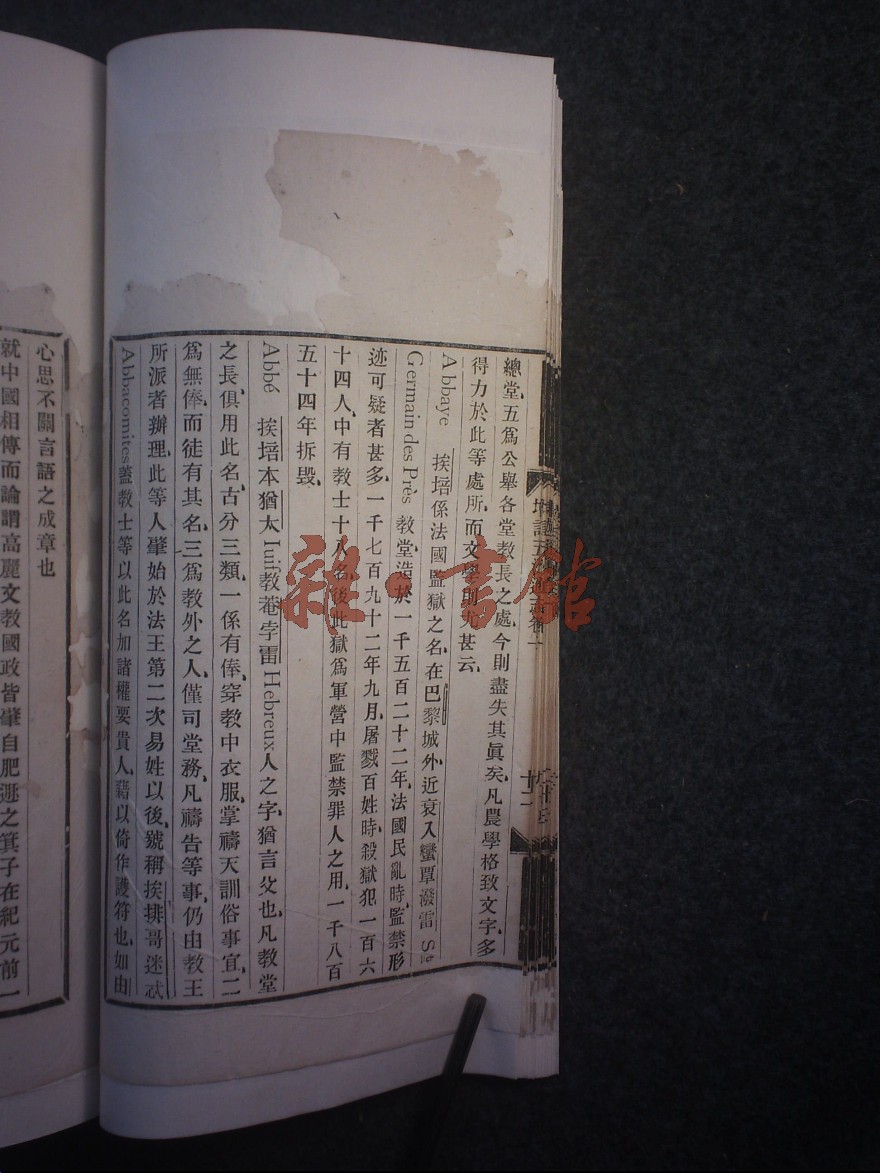 總堂、五爲公舉各堂教長之處、今則盡失其眞矣、凡農學格致文字、多
得力於此等處所、而文學則尤甚云、
Abbaye 挨培係法國監獄之名、在巴黎城外、近衰入蠻覃潑雷 St
Germain des Près 教堂、造於一千五百二十二年、法國民亂時、監禁形
迹可疑者甚多、一千七百九十二年九月、屠戮百姓時、殺獄犯一百六
十四人、中有教士十八名、後此獄爲軍營中監禁罪人之用、一千八百
五十四年拆毀、
Abbé 挨培本猶太 Iuif 教菴孛雷 Hebreux 人之字、猶言父也、凡教堂
之長、俱用此名、古分三類、一係有俸、穿教中衣服、掌禱天訓俗事宜、二
爲無俸、而徒有其名、三爲教外之人、僅司堂務、凡禱告等事、仍由教王
所派者辦理、此等人肇始於法王第二次易姓以後、號稱挨排哥迷忒
Abbacomites 蓋教士等以此名加諸權要貴人、藉以倚作護符也、如由
十一
心思不關言語之成章也
就中國相傳而論謂高麗文教國政皆肇自肥遯之箕子在紀元前一
雜·書館